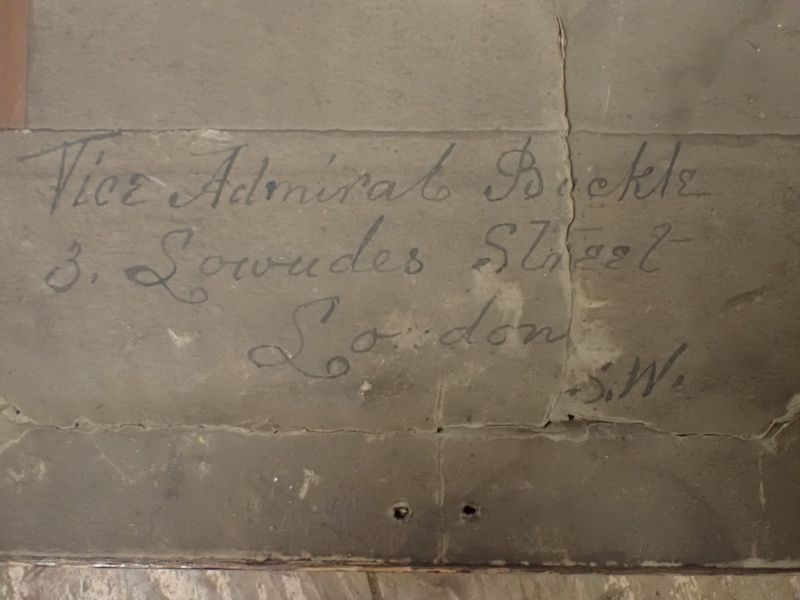 Vice Admiral Buckle
3. Lowndes Street
London
S.W.